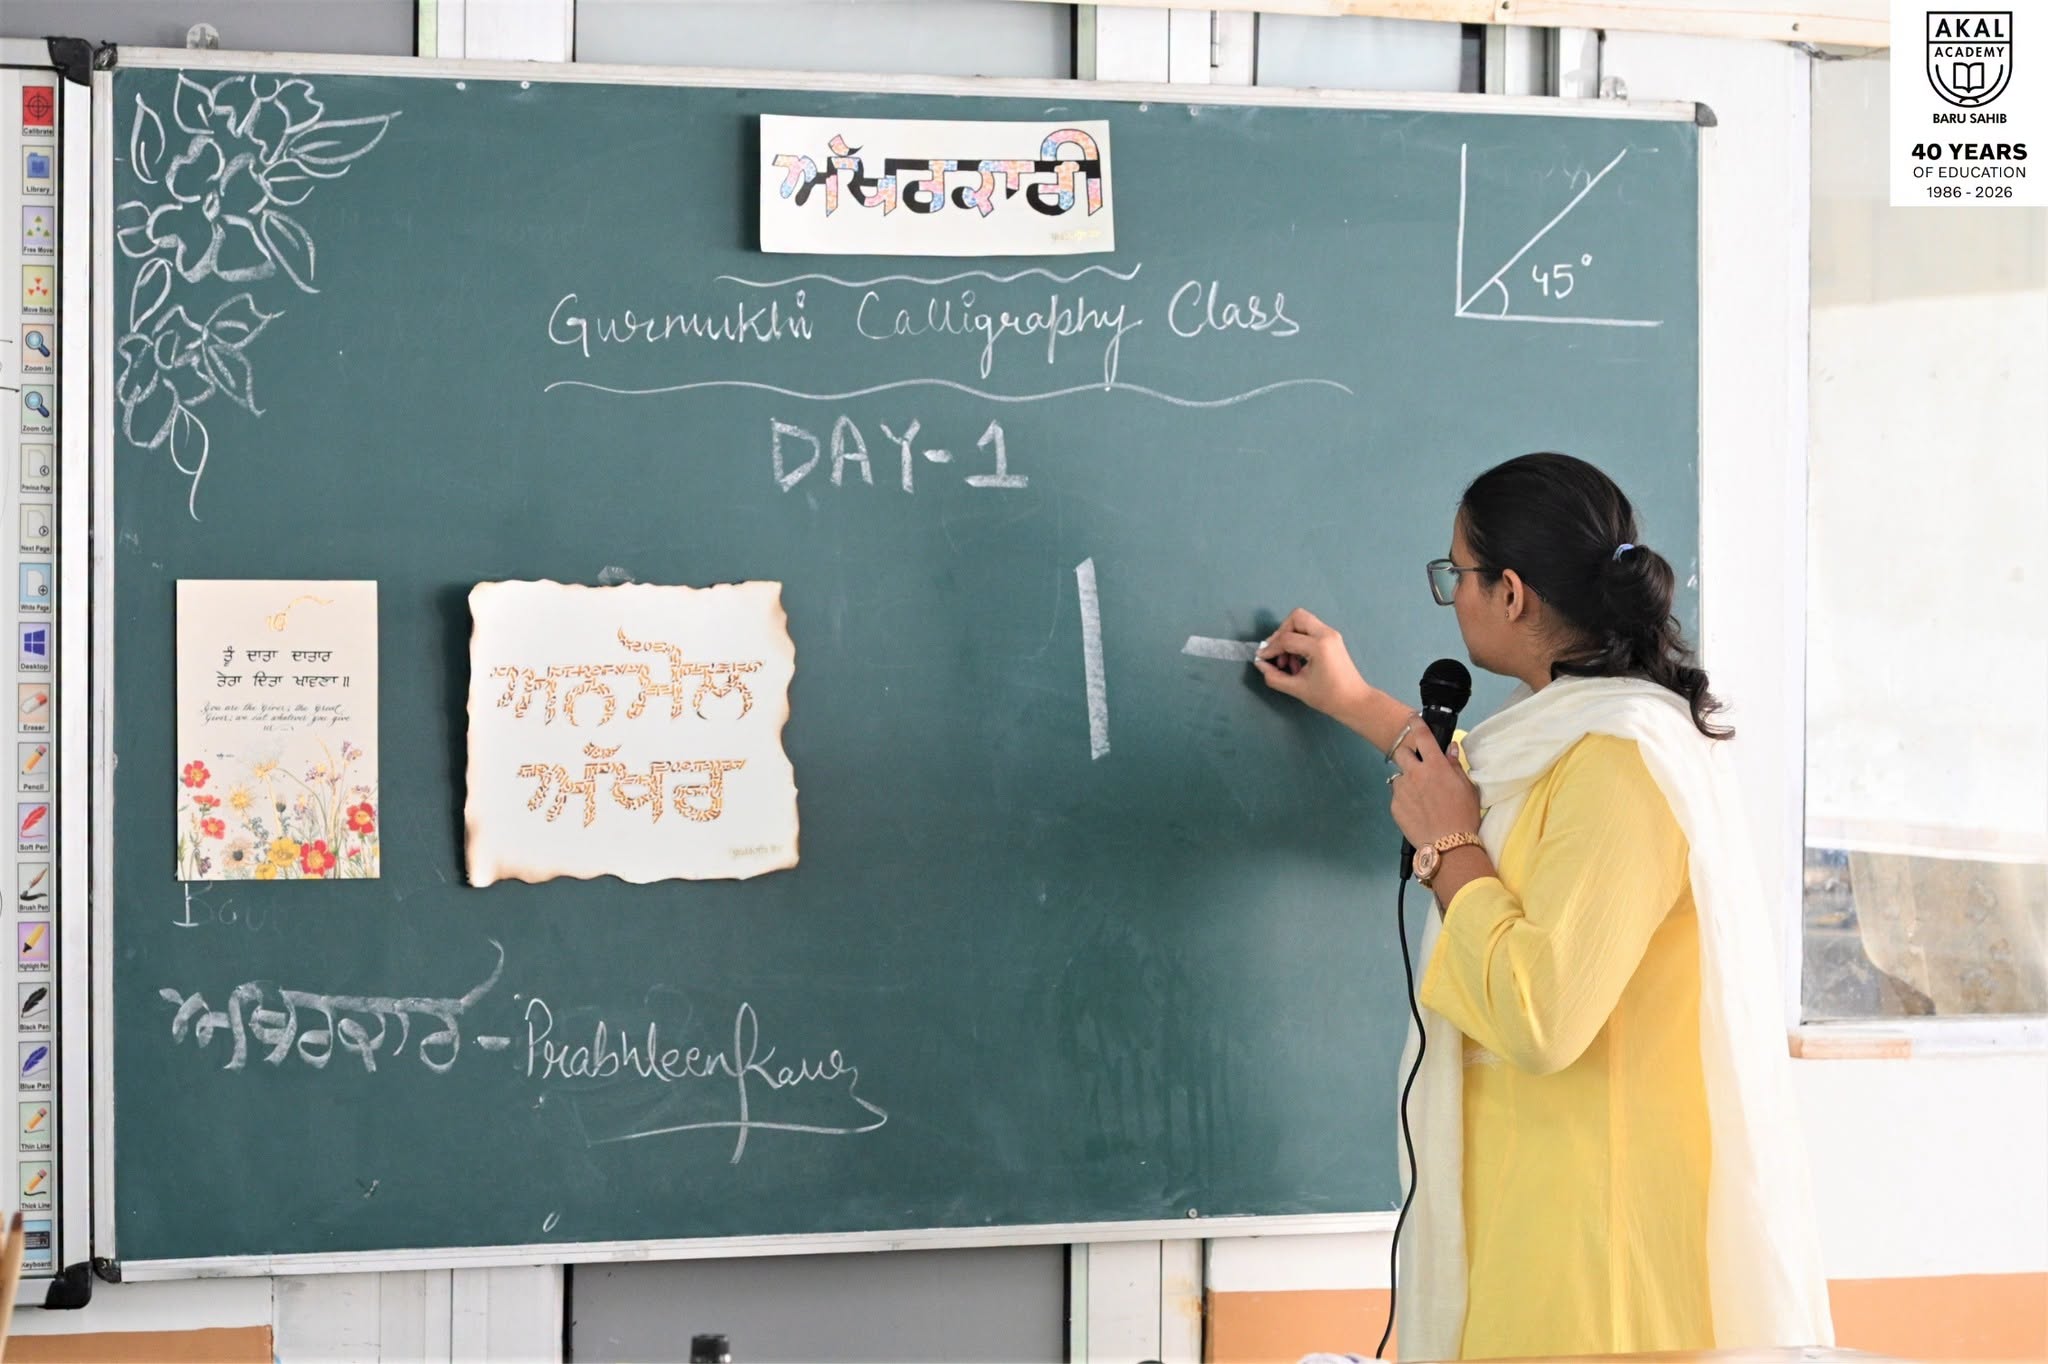 ਅੱਖਰਕਾਰੀ
Gurmukhi Calligraphy Class
DAY-1
45°
ਤੂੰ ਦਾਤਾ ਦਾਤਾਰ
ਤੇਰਾ ਦਿਤਾ ਖਾਵਣਾ॥
You are the Giver; the Great
Giver; we eat whatever you give
us
ਅਨਮੋਲ
ਅੱਖਰ
ਅਖਰਕਾਰ - Prabhleen Kaur
AKAL
ACADEMY
BARU SAHIB
40 YEARS
OF EDUCATION
1986 - 2026
Calibrate
Library
Free Move
Move Back
Zoom In
Zoom Out
Previous Page
Next Page
White Page
Desktop
Eraser
Pencil
Soft Pen
Brush Pen
Highlight Pen
Black Pen
Blue Pen
Thin Line
Thick Line
Keyboard